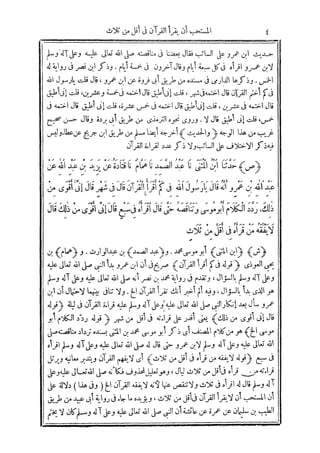 ٤ المستحب أن يقرأ القرآن فى أقل من ثلاث
حديث ابن عمرو على السائب فقال بعضنا فى مناقصته صلى الله تعالى عليه وعلى آله وسلم
لابن عمرو اقرأه فى كل سبعة أيام وقال آخرون فى خمسة أيام. وذكر ابن نصر فى رواية له
الخمس. وذكرها الدارمى فى مسنده من طريق أبى فروة عن ابن عمرو، قال قلت يارسول الله
فى كم أختم القرآن قال اختمه فى شهر، قلت إنى أطيق قال اختمه فى خمسة وعشرين، قلت إنى أطيق
قال اختمه فى عشرين، قلت إنى أطيق قال اختمه فى خمس عشرة، قلت إنى أطيق قال اختمه فى
خمس، قلت إنى أطيق قال لا. وروى نحوه الترمذى من طريق أبى بردة وقال حسن صحيح
غريب من هذا الوجه ﴿والحديث﴾ أخرجه أيضا مسلم من طريق ابن جريج عن عطاء وليس
فيه ذكر الاختلاف على السائب ولا ذكر عدد لقراءة القرآن
﴿ص﴾ حَدَّثَنَا ابْنُ الْمُثَنَّى نَا عَبْدُ الصَّمَدِ نَا هَمَّامٌ نَا قَتَادَةُ عَنْ يَزِيدَ بْنِ عَبْدِ اللهِ عَنْ
عَبْدِ اللهِ بْنِ عَمْرٍو أَنَّهُ قَالَ يَارَسُولَ اللهِ فِى كَمْ أَقْرَأُ الْقُرْآنَ قَالَ فِى شَهْرٍ قَالَ إِنِّى أَقْوَى مِنْ
ذٰلِكَ، رَدَّدَ الْكَلَامَ أَبُو مُوسَى وَتَنَاقَصَهُ حَتَّى قَالَ اقْرَأْهُ فِى سَبْعٍ قَالَ إِنِّى أَقْوَى مِنْ ذٰلِكَ قَالَ
لَا يَفْقَهُ مَنْ قَرَأَهُ فِى أَقَلَّ مِنْ ثَلَاثٍ
﴿ش﴾ ﴿ابن المثنى﴾ أبو موسى محمد. و ﴿عبد الصمد﴾ بن عبد الوارث. و ﴿همام﴾ بن
يحيى العوذى ﴿قوله فى كم أقرأ القرآن﴾ صريح فى أن ابن عمرو بدأ النبى صلى الله تعالى عليه
وعلى آله وسلم بالسؤال، وتقدم فى رواية محمد بن نصر أنه صلى الله تعالى عليه وعلى آله وسلم
هو الذى بدأ بالسؤال، وفيه ألم أخبر أنك تقرأ القرآن الخ. ولا تنافى بينهما لاحتمال أن ابن
عمرو سأل بعد إنكار النبى صلى الله تعالى عليه وعلى آله وسلم عليه قراءة القرآن فى ليلة ﴿قوله
قال إنى أقوى من ذلك﴾ يعنى أقدر على قراءته فى أقل من شهر ﴿قوله ردّد الكلام أبو
موسى الخ﴾ هو من كلام المصنف أى ذكر أبو موسى محمد بن المثنى بسنده ترداد مناقصته صلى
الله تعالى عليه وعلى آله وسلم لابن عمرو حتى قال له صلى الله تعالى عليه وعلى آله وسلم اقرأه
فى سبع ﴿قوله لا يفقه من قرأه فى أقل من ثلاث﴾ أى لا يفهم القرآن ويتدبر معانيه ويرتل
قراءته من قرأه فى أقل من ثلاث ليال، وهو تعليل لمحذوف فكأنه صلى الله تعالى عليه وعلى
آله وسلم قال له اقرأه فى ثلاث ولا تنقص عنها لأنه لا يفقه القرآن الخ ﴿وفى هذا﴾ دلالة على
أن المستحب أن لا يقرأ القرآن فى أقل من ثلاث، ويؤيده ما جاء فى رواية أبى عبيد من طريق
الطيب بن سليمان عن عمرة عن عائشة أن النبى صلى الله تعالى عليه وعلى آله وسلم كان لا يختم